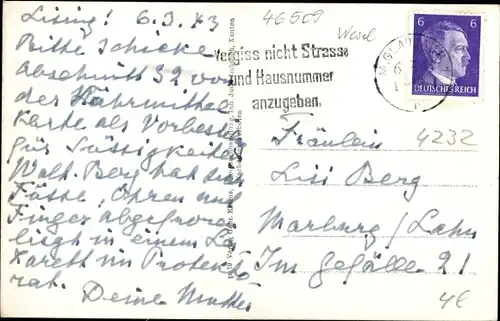 Lising! 6.3.43
Bitte schicke
Abschnitt 32 von
der Nährmittel
Karte als Vorbest.
für Süssigkeiten
Walt. Berg hat sich
Füsse, Ohren und
Finger abgefroren
liegt in einem La-
zarett im Protekto-
rat. Deine Mutter
46509
Wesel
Vergiss nicht Strasse
und Hausnummer
anzugeben
M.GLADBACH
6
6
DEUTSCHES REICH
Fräulein 4232
Lisi Berg
Marburg/Lahn
Im Gefälle 21
4€